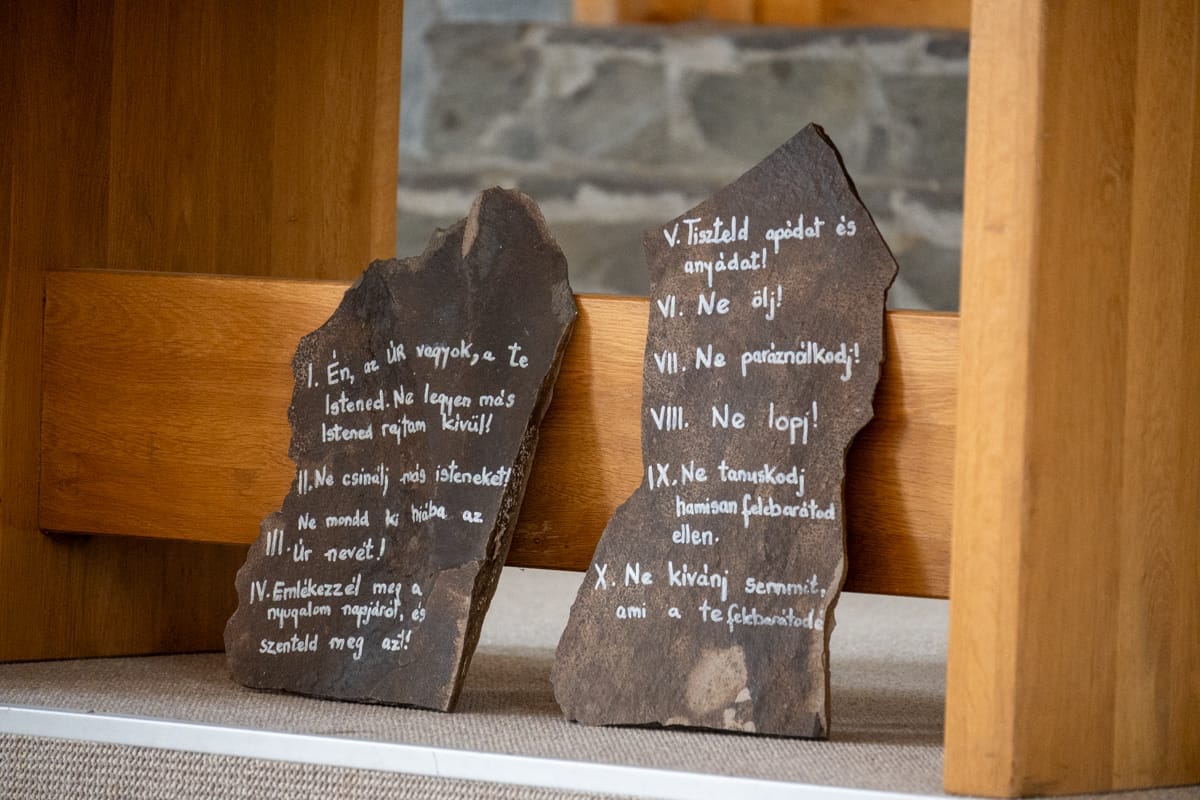 I. Én, az ÚR vagyok, a te
Istened. Ne legyen más
Istened rajtam kívül!
II. Ne csinálj más isteneket!
Ne mondd ki hiába az
III. Úr nevét!
IV. Emlékezzél meg a
nyugalom napjáról, és
szenteld meg azt!
V. Tiszteld apádat és
anyádat!
VI. Ne ölj!
VII. Ne paráználkodj!
VIII. Ne lopj!
IX. Ne tanuskodj
hamisan felebarátod
ellen.
X. Ne kívánj semmit,
ami a te felebarátodé